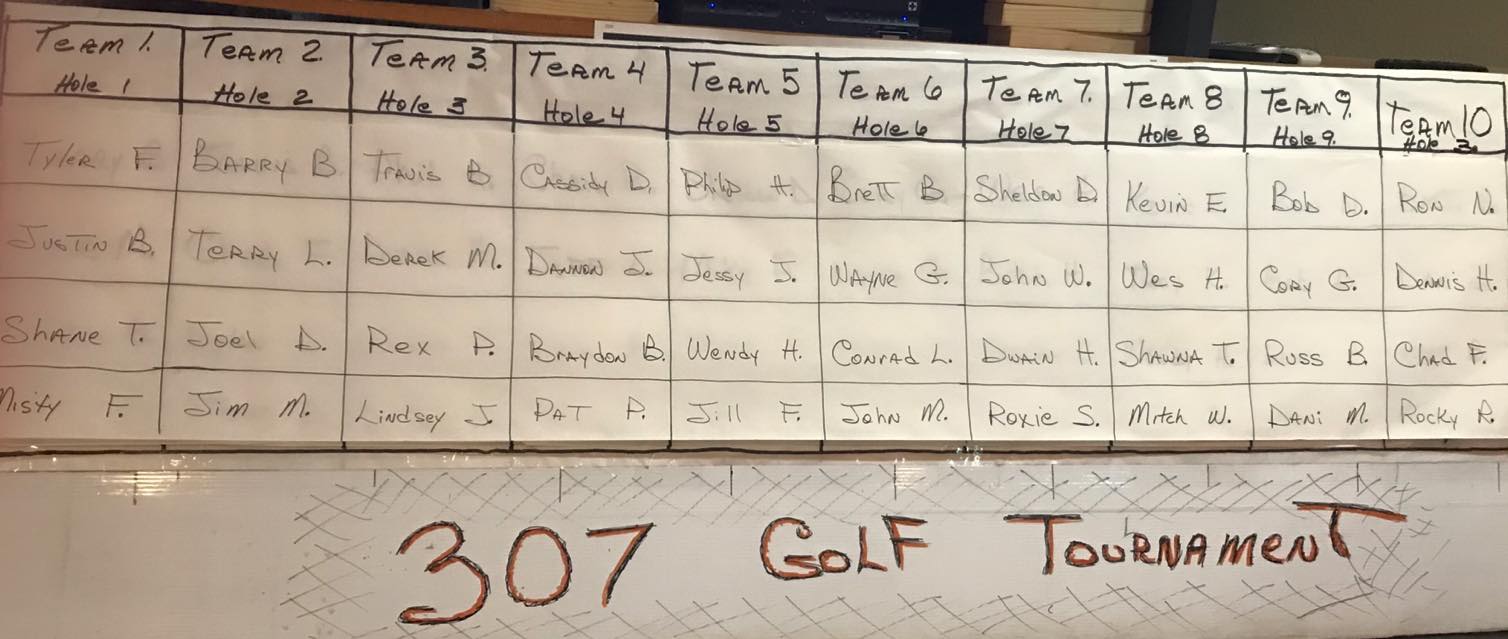 Team 1. Team 2. Team 3. Team 4 Team 5 Team 6 Team 7. Team 8 Team 9. Team 10
Hole 1 Hole 2 Hole 3 Hole 4 Hole 5 Hole 6 Hole 7 Hole 8 Hole 9. Hole 2.
Tyler F. Barry B Travis B Cassidy D. Philip H. Brett B Sheldon D. Kevin E. Bob D. Ron N.
Justin B. Terry L. Derek M. Dannon J. Jessy J. Wayne G. John W. Wes H. Cory G. Dennis H.
Shane T. Joel D. Rex P. Braydon B. Wendy H. Conrad L. Dwain H. Shawna T. Russ B. Chad F.
Misty F. Jim M. Lindsey J. Pat P. Jill F. John M. Roxie S. Mitch W. Dani M. Rocky R.
307 Golf Tournament